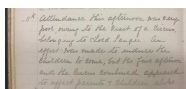 11th Attendance this afternoon was very
poor owing to the heat of a Circus,
belonging to Lord Sanger. An
effort was made to induce the
children to come, but the fine afternoon
and the Circus combined appeared
to affect parents & children alike